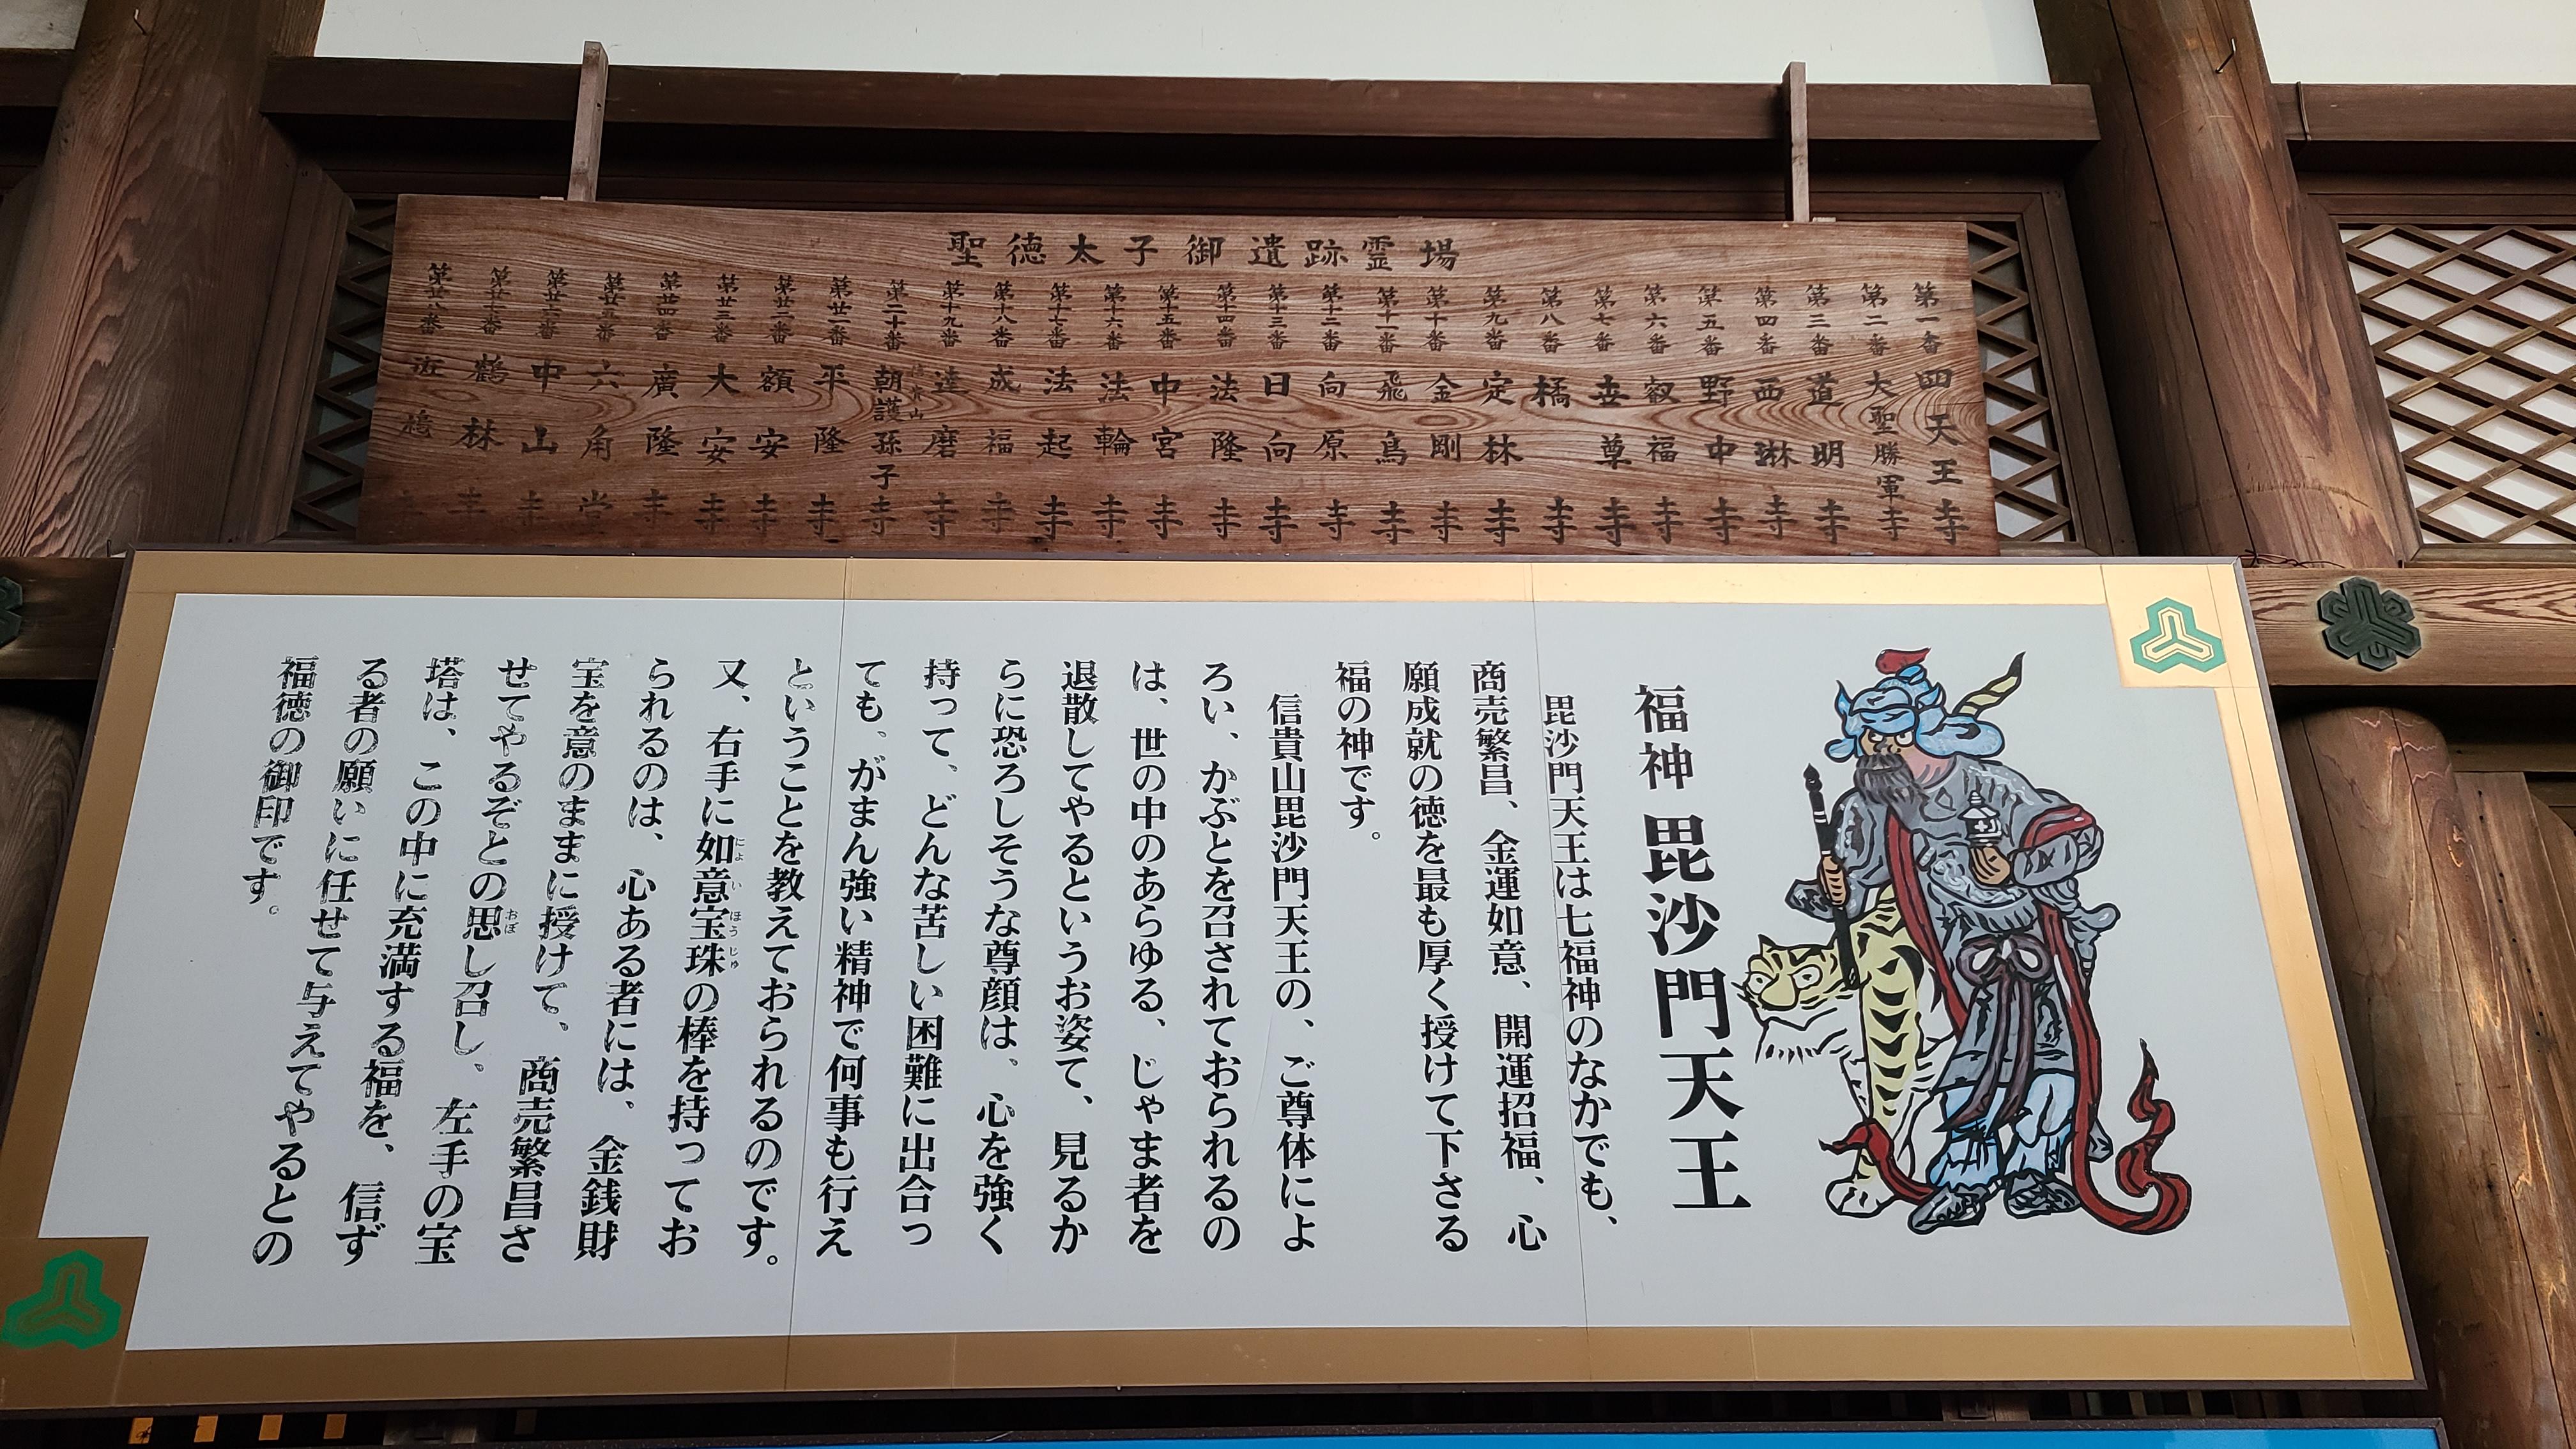 聖徳太子御遺跡霊場
第一番 四天王寺
第二番 大聖勝軍寺
第三番 道明寺
第四番 西琳寺
第五番 野中寺
第六番 叡福寺
第七番 世尊寺
第八番 橘寺
第九番 定林寺
第十番 金剛寺
第十一番 飛鳥寺
第十二番 向原寺
第十三番 日向寺
第十四番 法隆寺
第十五番 中宮寺
第十六番 法輪寺
第十七番 法起寺
第十八番 成福寺
第十九番 達磨寺
第二十番 信貴山 朝護孫子寺
第廿一番 平隆寺
第廿二番 額安寺
第廿三番 大安寺
第廿四番 廣隆寺
第廿五番 六角堂
第廿六番 中山寺
第廿七番 鶴林寺
第廿八番 寺
福神 毘沙門天王
毘沙門天王は七福神のなかでも、
商売繁昌、金運如意、開運招福、心
願成就の徳を最も厚く授けて下さる
福の神です。
信貴山毘沙門天王の、ご尊体によ
ろい、かぶとを召されておられるの
は、世の中のあらゆる、じゃま者を
退散してやるというお姿て、見るか
らに恐ろしそうな尊顔は、心を強く
持って、どんな苦しい困難に出合っ
ても、がまん強い精神で何事も行え
ということを教えておられるのです。
又、右手に如意宝珠の棒を持ってお
にょ い ほう じゅ
られるのは、心ある者には、金銭財
宝を意のままに授けて、商売繁昌さ
せてやるぞとの思し召し、左手の宝
おぼ
塔は、この中に充満する福を、信ず
る者の願いに任せて与えてやるとの
福徳の御印です。